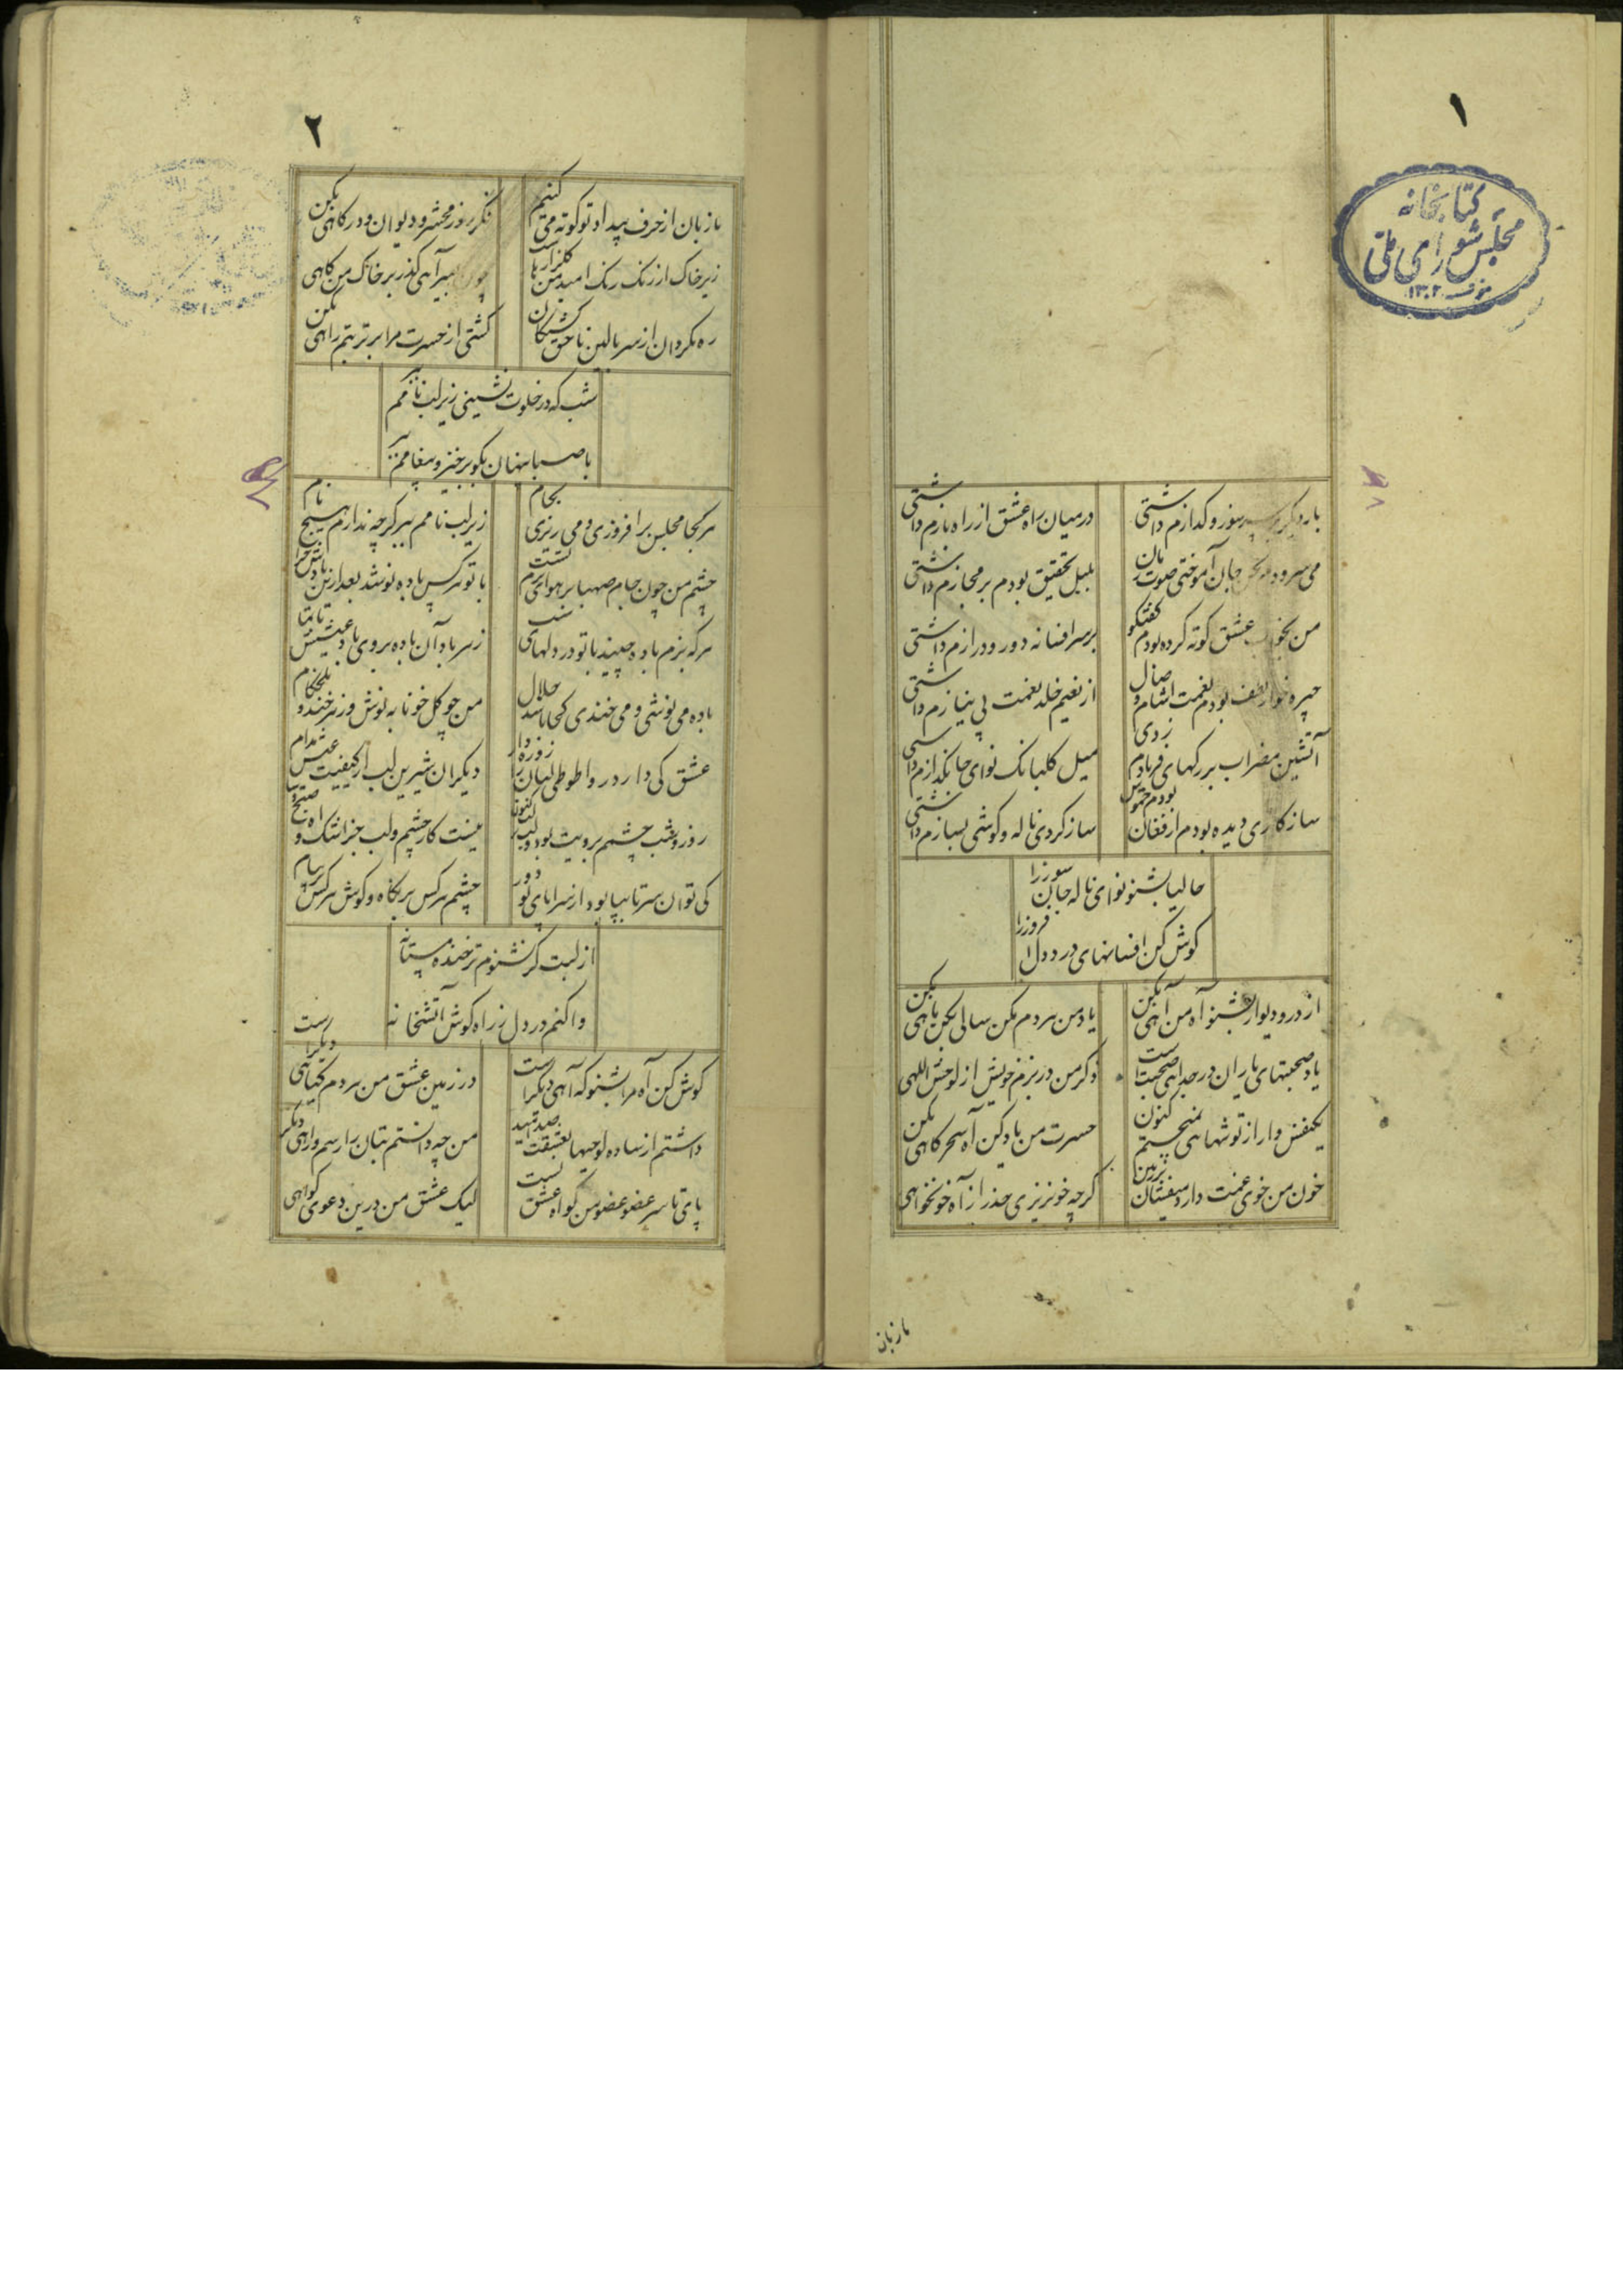 ۱
کتابخانه
مجلس شورای ملی
۱۳۰۲
بار دیگر بر سر سوز و گدازم داشتی
در میان راه عشق از راه بازم داشتی
می سرود جان آموختی صوت
بلبل تحقیق بودم بر مجازم داشتی
من عشق کوته کرده بودم گفتگو
بر سر افسانه دور و درازم داشتی
از نعیم خلد نعمت بی نیازم داشتی
آتشین مضراب بر رگهای فریادم زدی
میل گلبانک نوای جانگدازم داشتی
سازگاری دیده بودم از فغان بودم خموش
ساز کردی ناله و گوشی بسازم داشتی
حالیا بشنو نوای ناله جان سوز را
گوش کن افسانهای درد دل افروز را
از در و دیوار بشنو آه من آهی بکن
یاد من هر دم مکن سالی بکن ماهی بکن
یاد صحبتهای یاران در جدایی صحبت است
ذکر من در بزم خویش از لوحش اللهی بکن
یکنفس وار از تو شبها هم نمیجستم کنون
حسرت من یاد کن آه سحرگاهی بکن
خون من خوی غمت دارد میفشان بر زمین
گرچه خونریزی حذر از آه خونخواهی بکن
ما زبان
۲
ما زبان از حرف بیداد تو کوته می کنیم
فکر روز محشر و دیوان و درگاهی بکن
زیر خاک از رنگ رنگ امید من گلزارهاست
میرآهی گذر بر خاک من گاهی بکن
ره مگردان از سر بالین ناحق کشتگان
کشتی از حسرت مرا بر تربتم راهی بکن
شب که در خلوت نشینی زیر لب نامم ببر
با صبا پنهان بگو برخیز و پیغامم ببر
هر کجا مجلس برافروزی و می ریزی بجام
زیر لب نامم ببر گرچه ندارم هیچ نام
چشم من چون جام صهبا بر هوای بزم تست
با تو هر کس باده نوشد بعد ازین بادش حرام
هر که بزم باده چیند با تو در دلهای شب
زهر باد آن باده بر وی باد عیشش ناتمام
باده می نوشی و می خندی کجا باشد حلال
من چو گل خونابه نوش و زهرخند و تلخکام
عشق کی دارد روا طوطی لبان را زهردار
دیگران شیرین لب از کیفیت عیش مدام
روز و شب چشمم برویت بود و لب بر لب کنون
نیست کار چشم و لب جز اشک و آه صبح و شام
کی توان سر تا بپا بود از سراپای تو دور
چشم هر کس بر نگاه و گوش هر کس بر پیام
از لبت گر نشنوم تر خنده مستانه
وا کنم در دل ز راه گوش آتشخانه
گوش کن آه مرا بشنو که آهی دیگر است
در زمین عشق من هر دم گیاهی دیگر است
داشتم از ساده لوحیها بعشقت صد امید
من چه دانستم بتان را رسم و راهی دیگر است
پای تا سر عضو عضو من گواه عشق تست
لیک عشق من درین دعوی گواهی